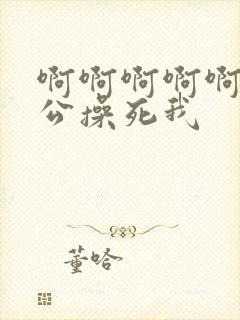 啊啊啊啊啊
公操死我
董哈